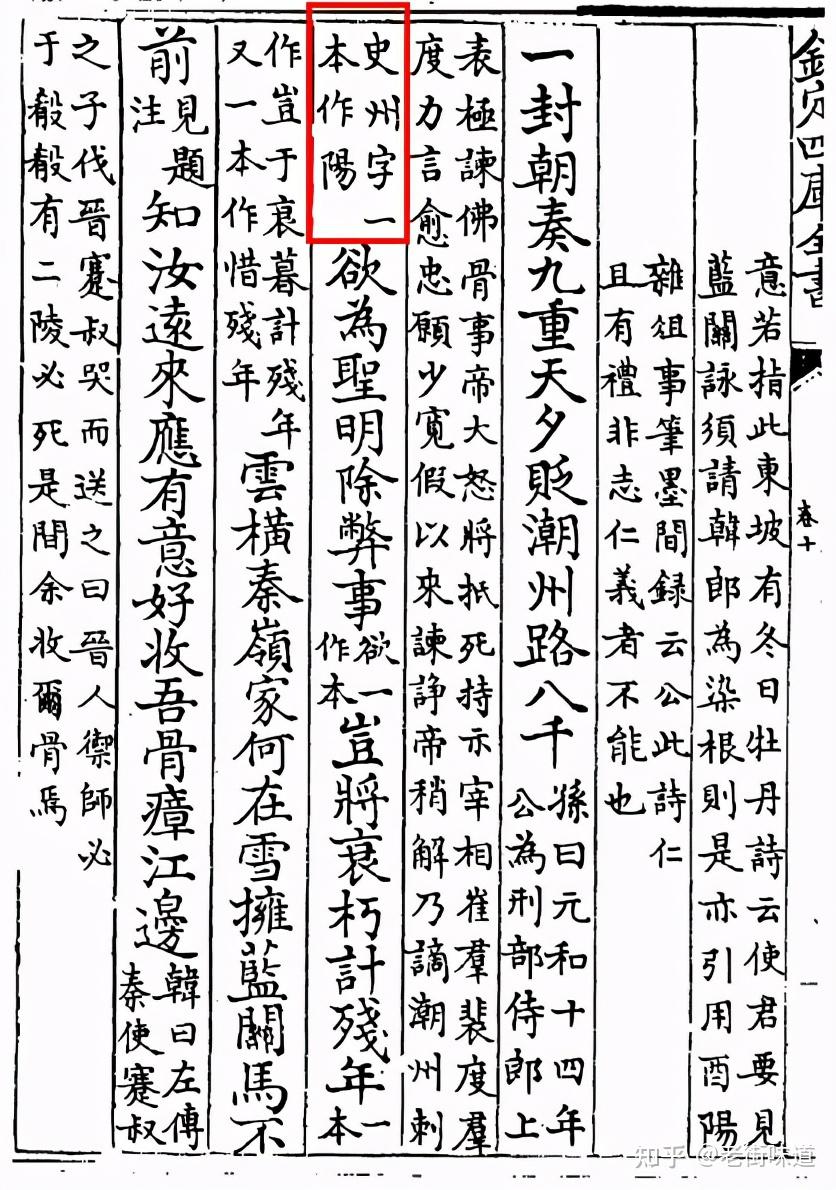 欽定四庫全書
卷十
意若指此東坡有冬日牡丹詩云使君要見
藍關詠須請韓郎為染根則是亦引用酉陽
雜俎事筆墨間録云公此詩仁
且有禮非志仁義者不能也
一封朝奏九重天夕貶潮州路八千孫曰元和十四年公為刑部侍郎上
表極諫佛骨事帝大怒將抵死持示宰相崔羣裴度羣
度力言愈忠願少寬假以來諫諍帝稍解乃謫潮州刺
史州字一本作陽欲為聖明除弊事欲一作本豈將衰朽計殘年一本
作豈于衰暮計殘年又一本作惜殘年雲橫秦嶺家何在雪擁藍關馬不
前見題注知汝遠來應有意好收吾骨瘴江邊韓曰左傳秦使蹇叔
之子伐晉蹇叔哭而送之曰晉人禦師必
于殽殽有二陵必死是間余收爾骨焉
知乎 @老街味道